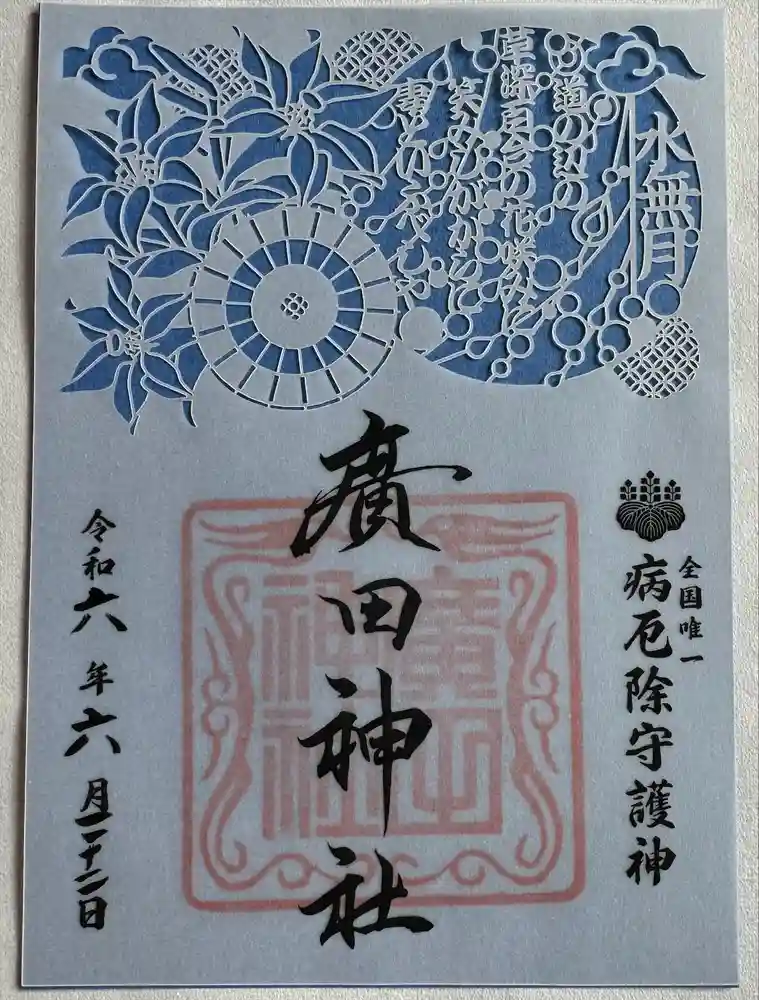 水無月
道の辺の
草深百合の花咲みに
笑みしがからに
全国唯一
病厄除守護神
廣田神社
廣田神社
令和六年六月二十二日